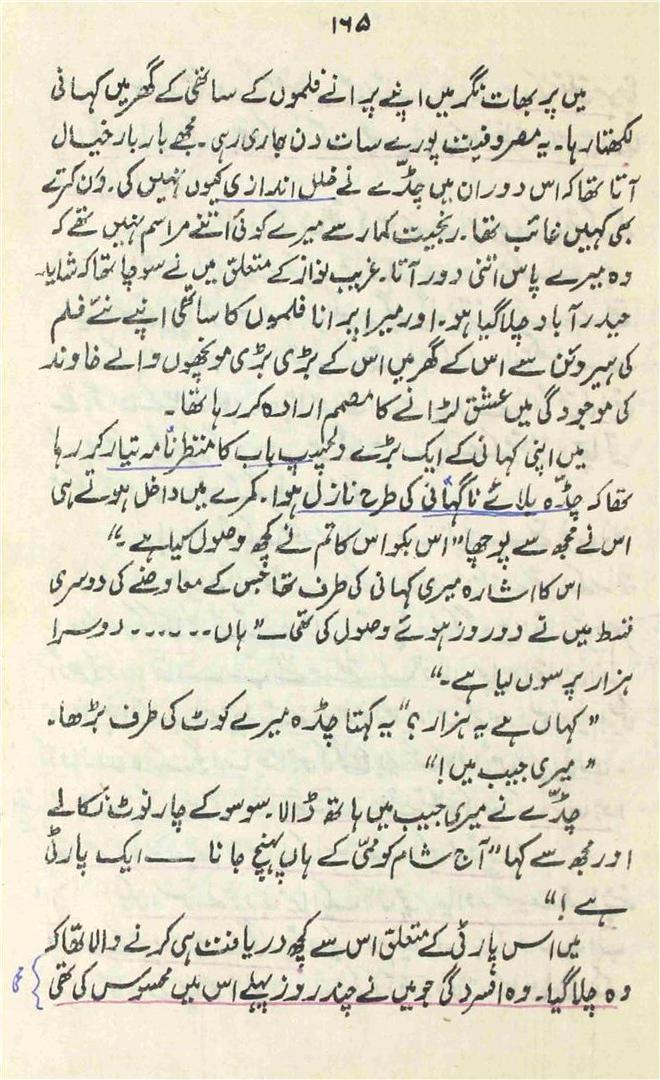 ۱۶۵
میں پربھات نگر میں اپنے پرانے فلموں کے ساتھی کے گھر میں کہانی
لکھتا رہا۔ یہ مصروفیت پورے سات دن جاری رہی۔ مجھے بار بار خیال
آتا تھا کہ اس دوران میں چڈّے نے خلل اندازی کیوں نہیں کی۔ ون کترے
بھی کہیں غائب تھا۔ رنجیت کمار سے میرے کوئی اتنے مراسم نہیں تھے کہ
وہ میرے پاس اتنی دور آتا۔ غریب نواز کے متعلق میں نے سوچا تھا کہ شاید
حیدر آباد چلا گیا ہو۔ اور میرا پرانا فلموں کا ساتھی اپنے نئے فلم
کی ہیروئن سے اس کے گھر میں اس کے بڑی بڑی مونچھوں والے خاوند
کی موجودگی میں عشق لڑانے کا مصمم ارادہ کر رہا تھا۔
میں اپنی کہانی کے ایک بڑے دلچسپ باب کا منظر نامہ تیار کر رہا
تھا کہ چڈّہ بلائے ناگہانی کی طرح نازل ہوا۔ کمرے میں داخل ہوتے ہی
اس نے مجھ سے پوچھا ”اس بکواس کا تم نے کچھ وصول کیا ہے۔“
اس کا اشارہ میری کہانی کی طرف تھا جس کے معاوضے کی دوسری
قسط میں نے دو روز ہوئے وصول کی تھی۔ ”ہاں۔۔۔۔۔۔ دوسرا
ہزار پرسوں لیا ہے۔“
”کہاں ہے یہ ہزار؟“ یہ کہتا چڈہ میرے کوٹ کی طرف بڑھا۔
”میری جیب میں!“
چڈّے نے میری جیب میں ہاتھ ڈالا۔ سو سو کے چار نوٹ نکالے
اور مجھ سے کہا ”آج شام کو ممّی کے ہاں پہنچ جانا —— ایک پارٹی
ہے!“
میں اس پارٹی کے متعلق اس سے کچھ دریافت ہی کرنے والا تھا کہ
وہ چلا گیا۔ وہ افسردگی جو میں نے چند روز پہلے اس میں محسوس کی تھی